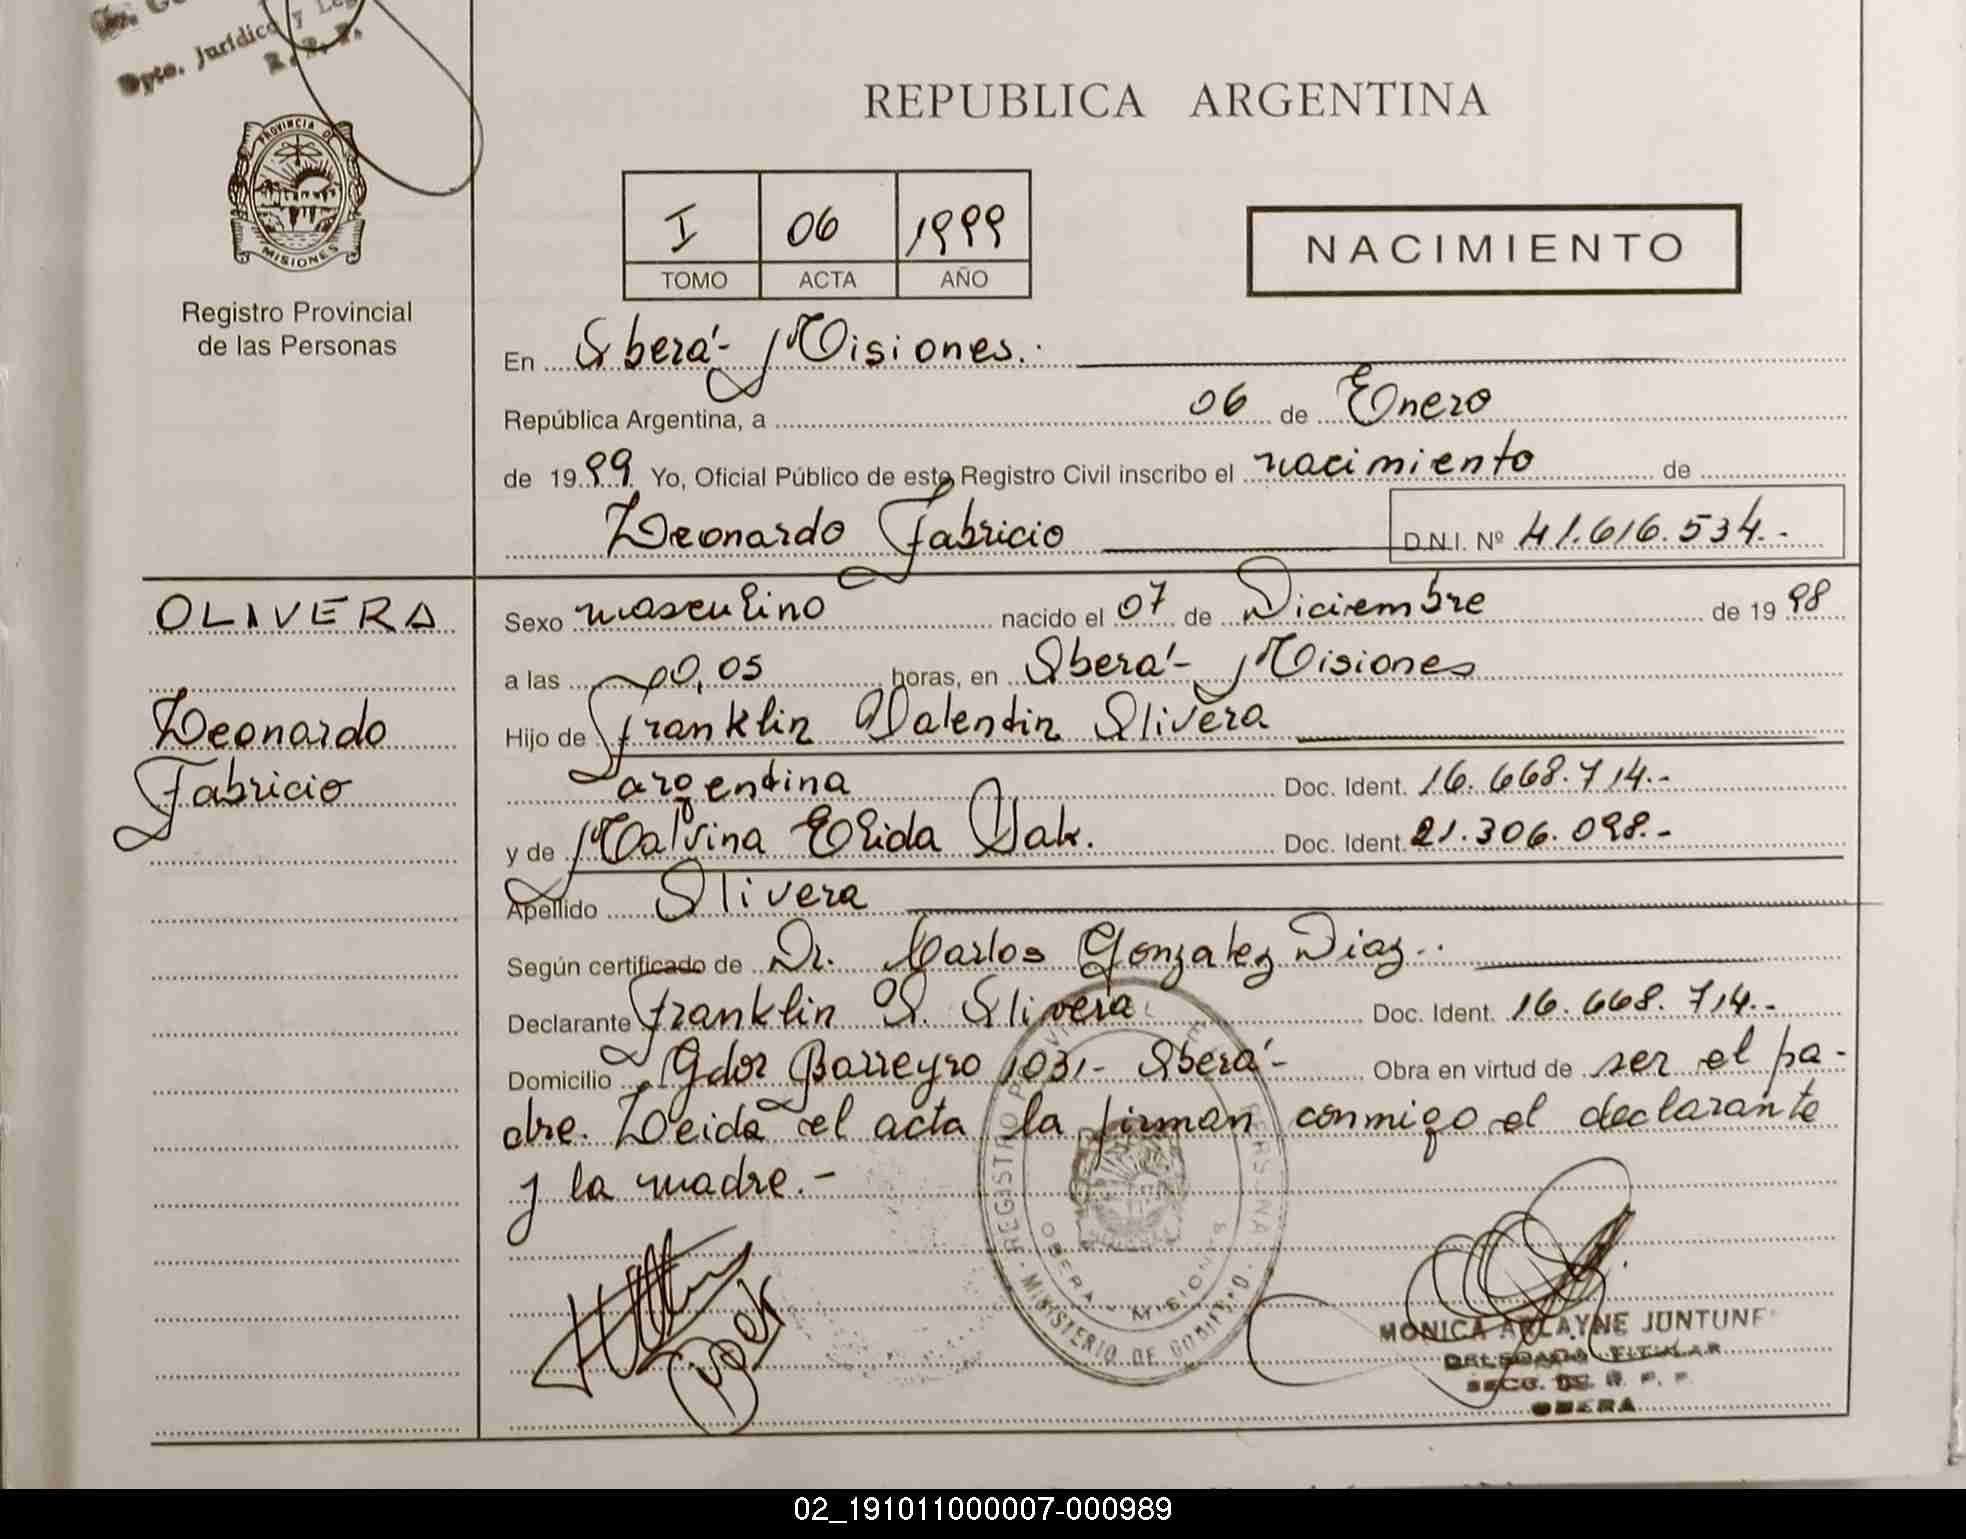 Dpto. Jurídico y Leg
R. P. P.
REPUBLICA ARGENTINA
PROVINCIA DE
MISIONES
Registro Provincial
de las Personas
I 06 1999
TOMO ACTA AÑO
NACIMIENTO
En Oberá - Misiones.-
República Argentina, a 06 de Enero
de 1999 Yo, Oficial Público de este Registro Civil inscribo el nacimiento de
Leonardo Fabricio D.N.I. Nº 41.616.534.-
OLIVERA
Leonardo
Fabricio
Sexo masculino nacido el 07 de Diciembre de 1998
a las 20,05 horas, en Oberá - Misiones
Hijo de Franklin Valentin Olivera
argentina Doc. Ident. 16.668.714.-
y de Malvina Elida Dak. Doc. Ident. 21.306.098.-
Apellido Olivera
Según certificado de Dr. Carlos Gonzalez Diaz.-
Declarante Franklin V. Olivera Doc. Ident. 16.668.714.-
Domicilio Gdor Barreyro 1031- Oberá - Obra en virtud de ser el pa-
dre. Leida el acta la firman conmigo el declarante
y la madre.-
REGISTRO PROV
OBERA - MISIONES
MINISTERIO DE GOBIERNO
MONICA ARLAYNE JUNTUNE
DELEGADA TITULAR
SECC. DE R. P. P.
OBERA
02_191011000007-000989